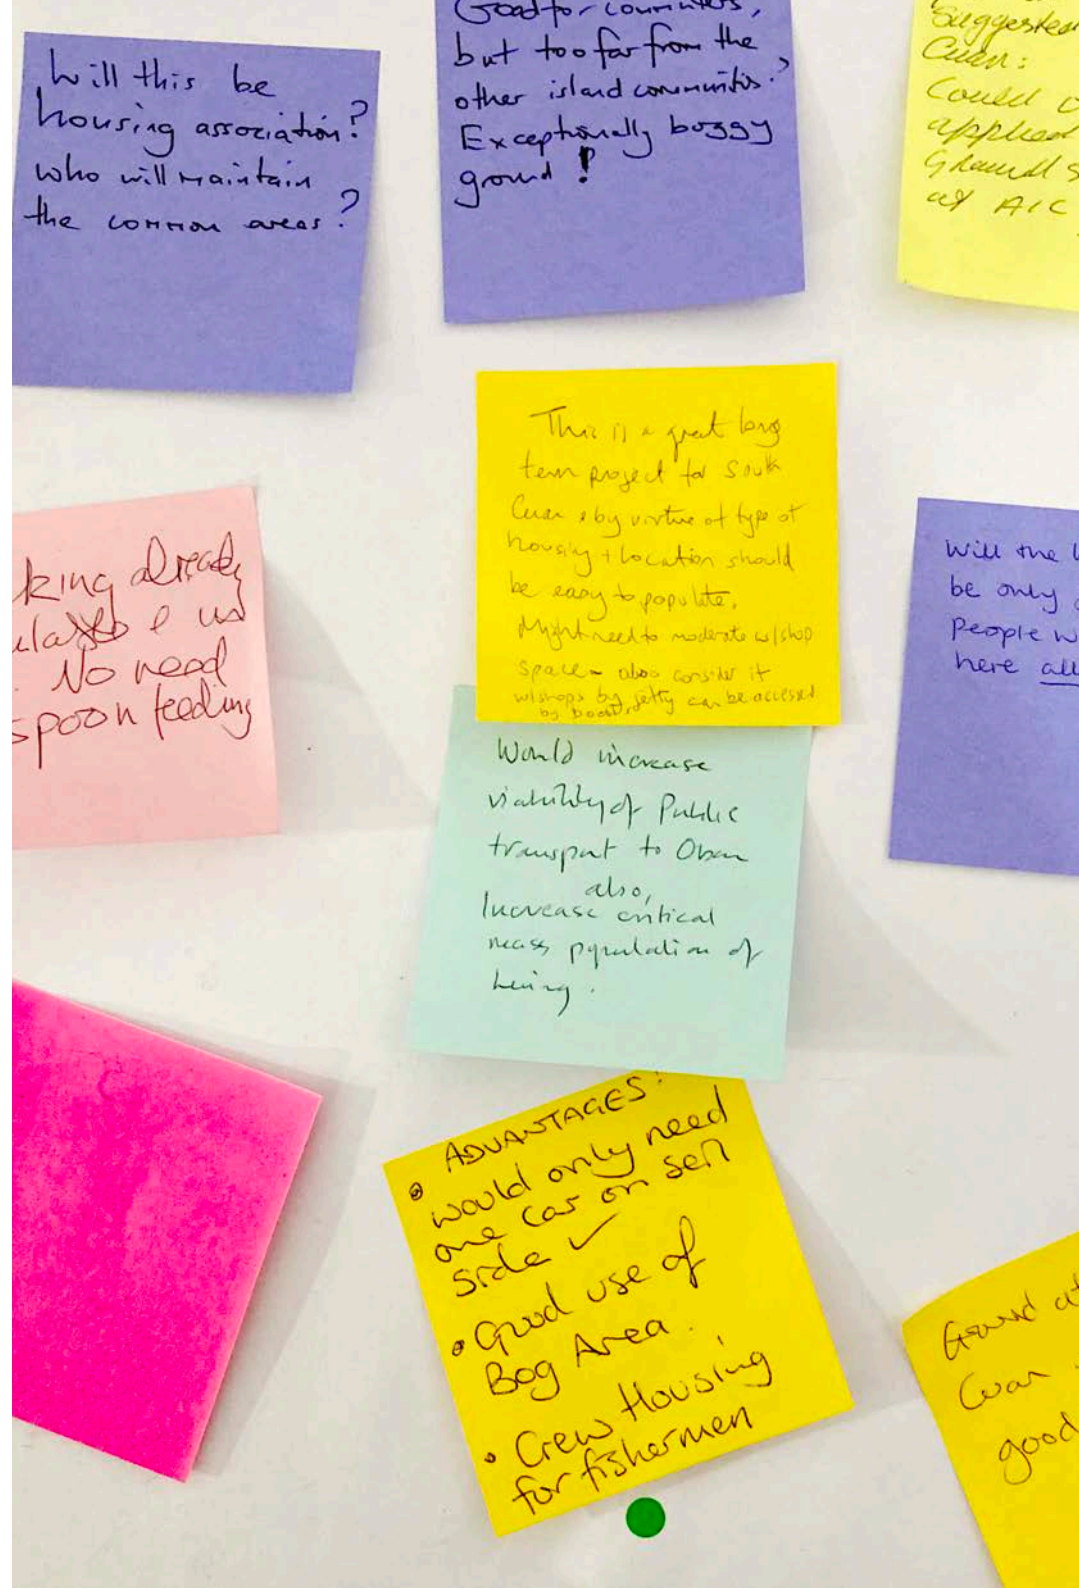 Will this be
housing association?
who will maintain
the common areas?
Good for commuters,
but too far from the
other island communities?
Exceptionally boggy
ground!
Suggested
Cuan:
Could
applied
Ground S
at AIC
This is a great long
term project for South
Cuan & by virtue of type of
housing + location should
be easy to populate.
Might need to moderate w/shop
space - also consider if
w/shops by jetty can be accessed
by boats.
king already
No need
spoon feeding
Will the
be only
People w
here all
Would increase
viability of Public
transport to Oban
also,
Increase critical
mass population of
being.
ADVANTAGES:
• would only need
one car on seil
side ✓
• Good use of
Bog Area.
• Crew Housing
for fishermen
Ground at
Cuan
good